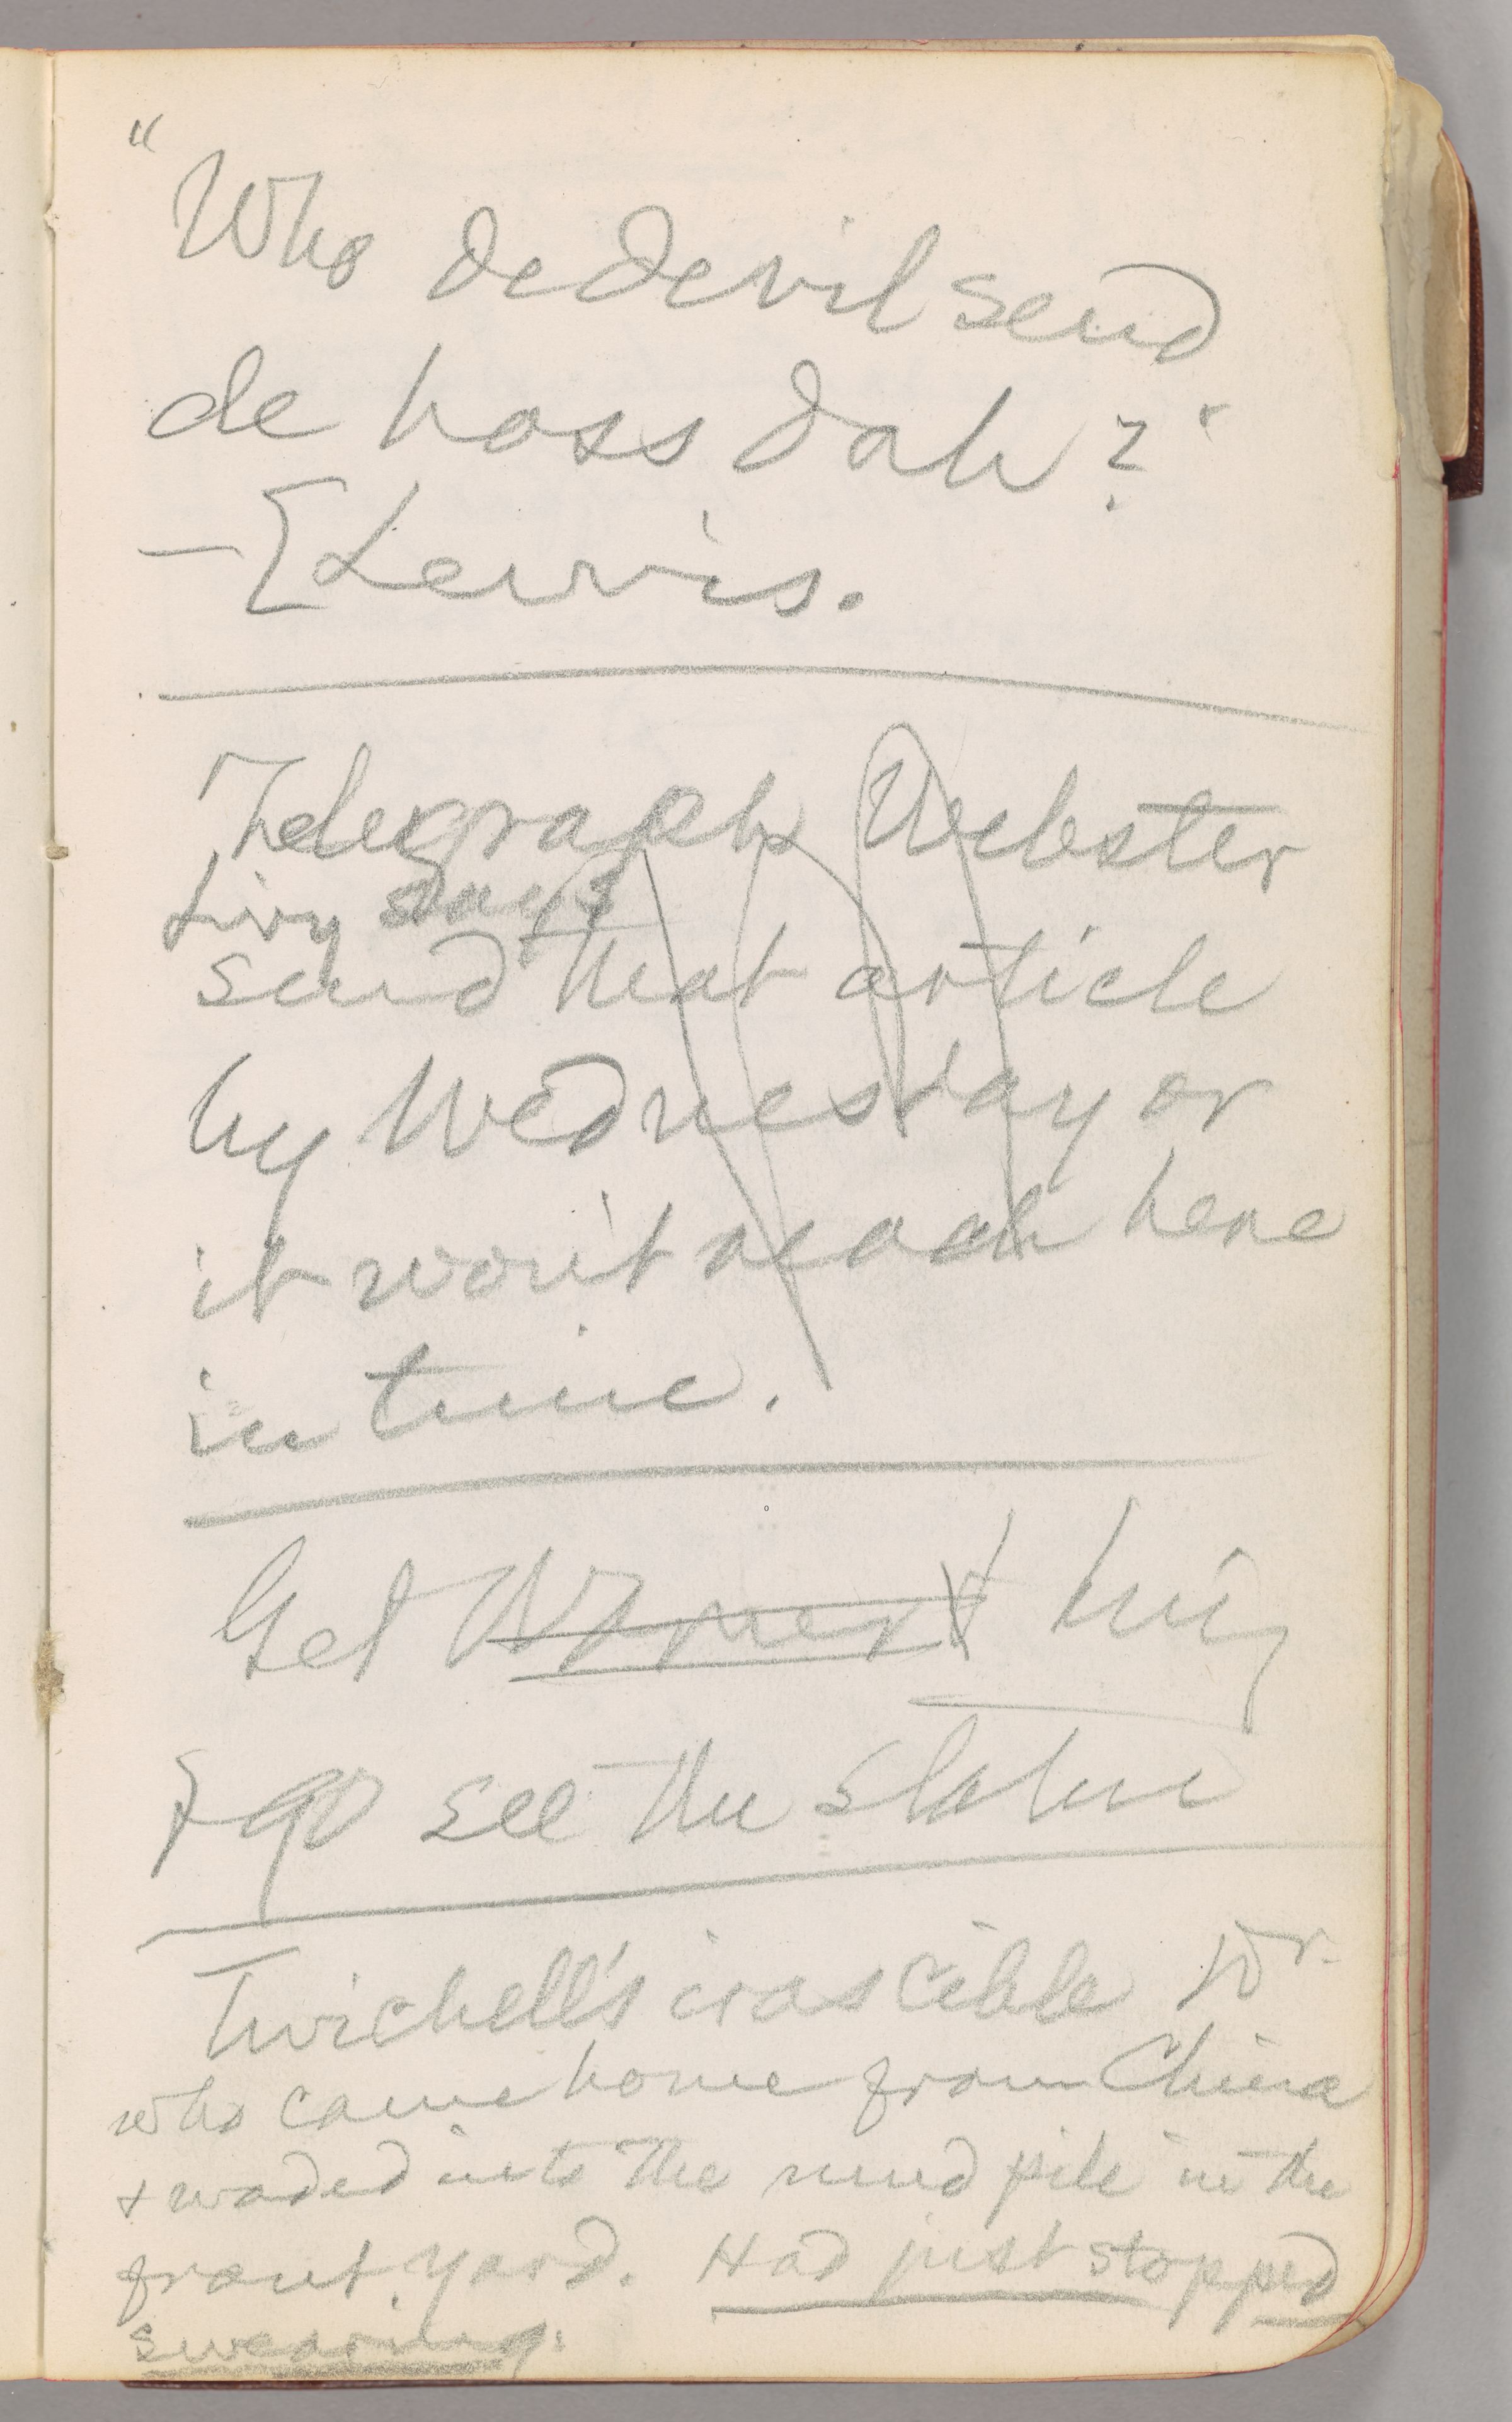 "Who de devil send
de hoss dah?"
—[Lewis.
Telegraph Webster
Livy says
send that article
by Wednesday or
it won't reach here
in time.
Get Warner &
& go see the statue
Twichell's irascible Dr.
who came home from China
& waded into the mud pile in the
front yard. Had just stopped
swearing.